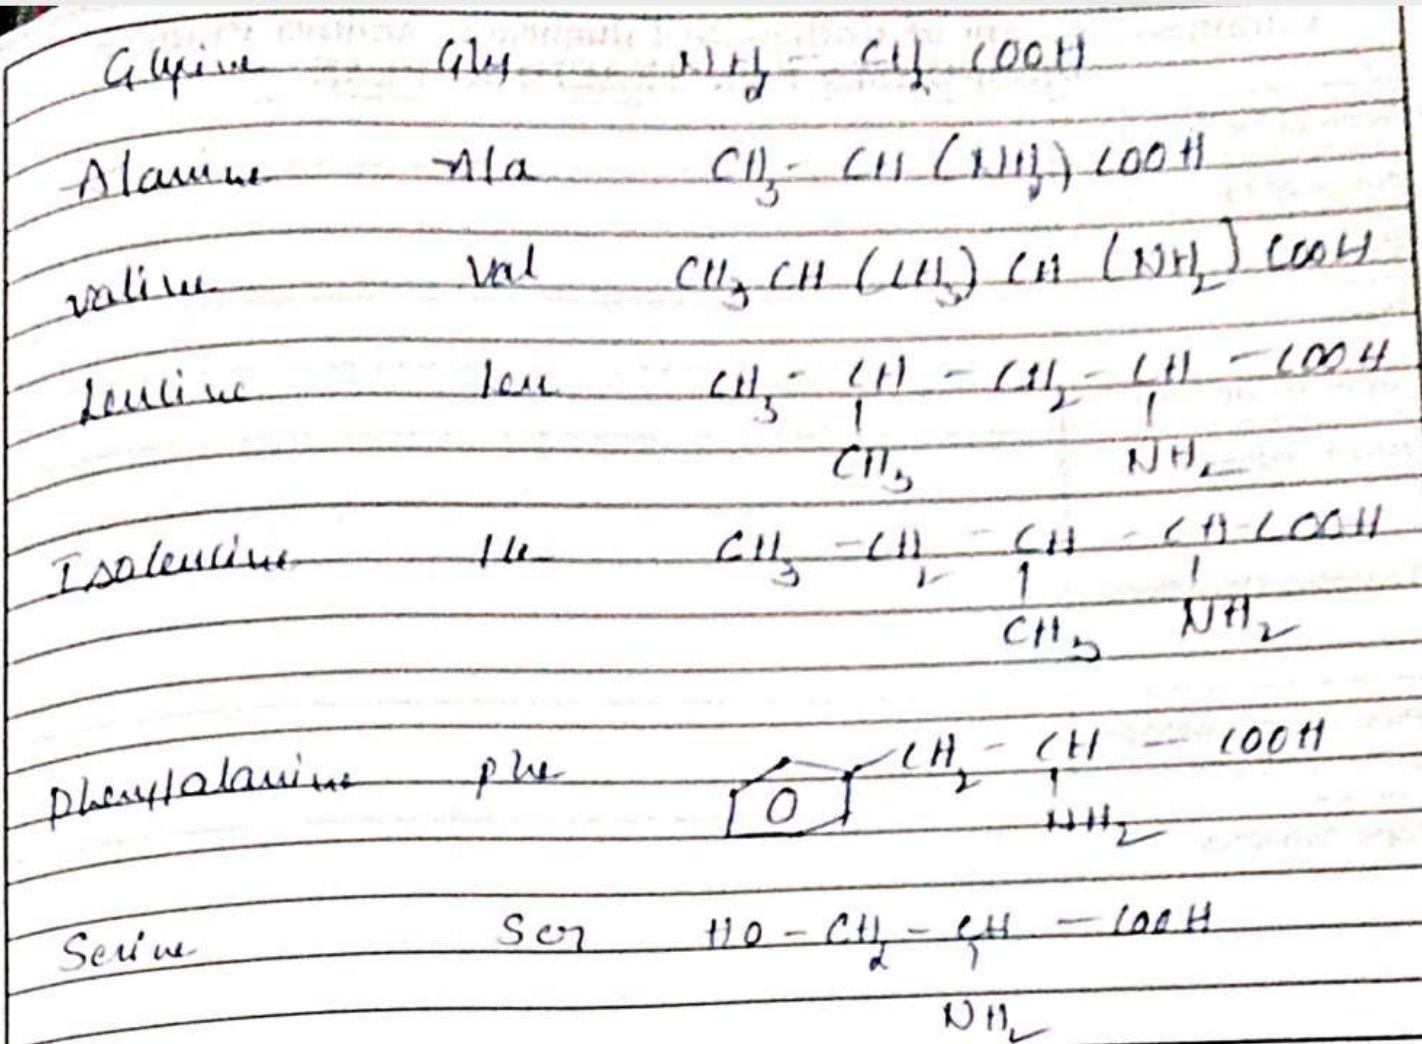 Glycine Gly NH2 - CH2 COOH
Alanine Ala CH3 - CH (NH2) COOH
valine val CH3 CH (CH3) CH (NH2) COOH
Leucine leu CH3 - CH - CH2 - CH - COOH
CH3 NH2
Isoleucine Ile CH3 - CH2 - CH - CH - COOH
CH3 NH2
phenylalanine phe CH2 - CH - COOH
NH2
Serine Ser HO - CH2 - CH - COOH
NH2